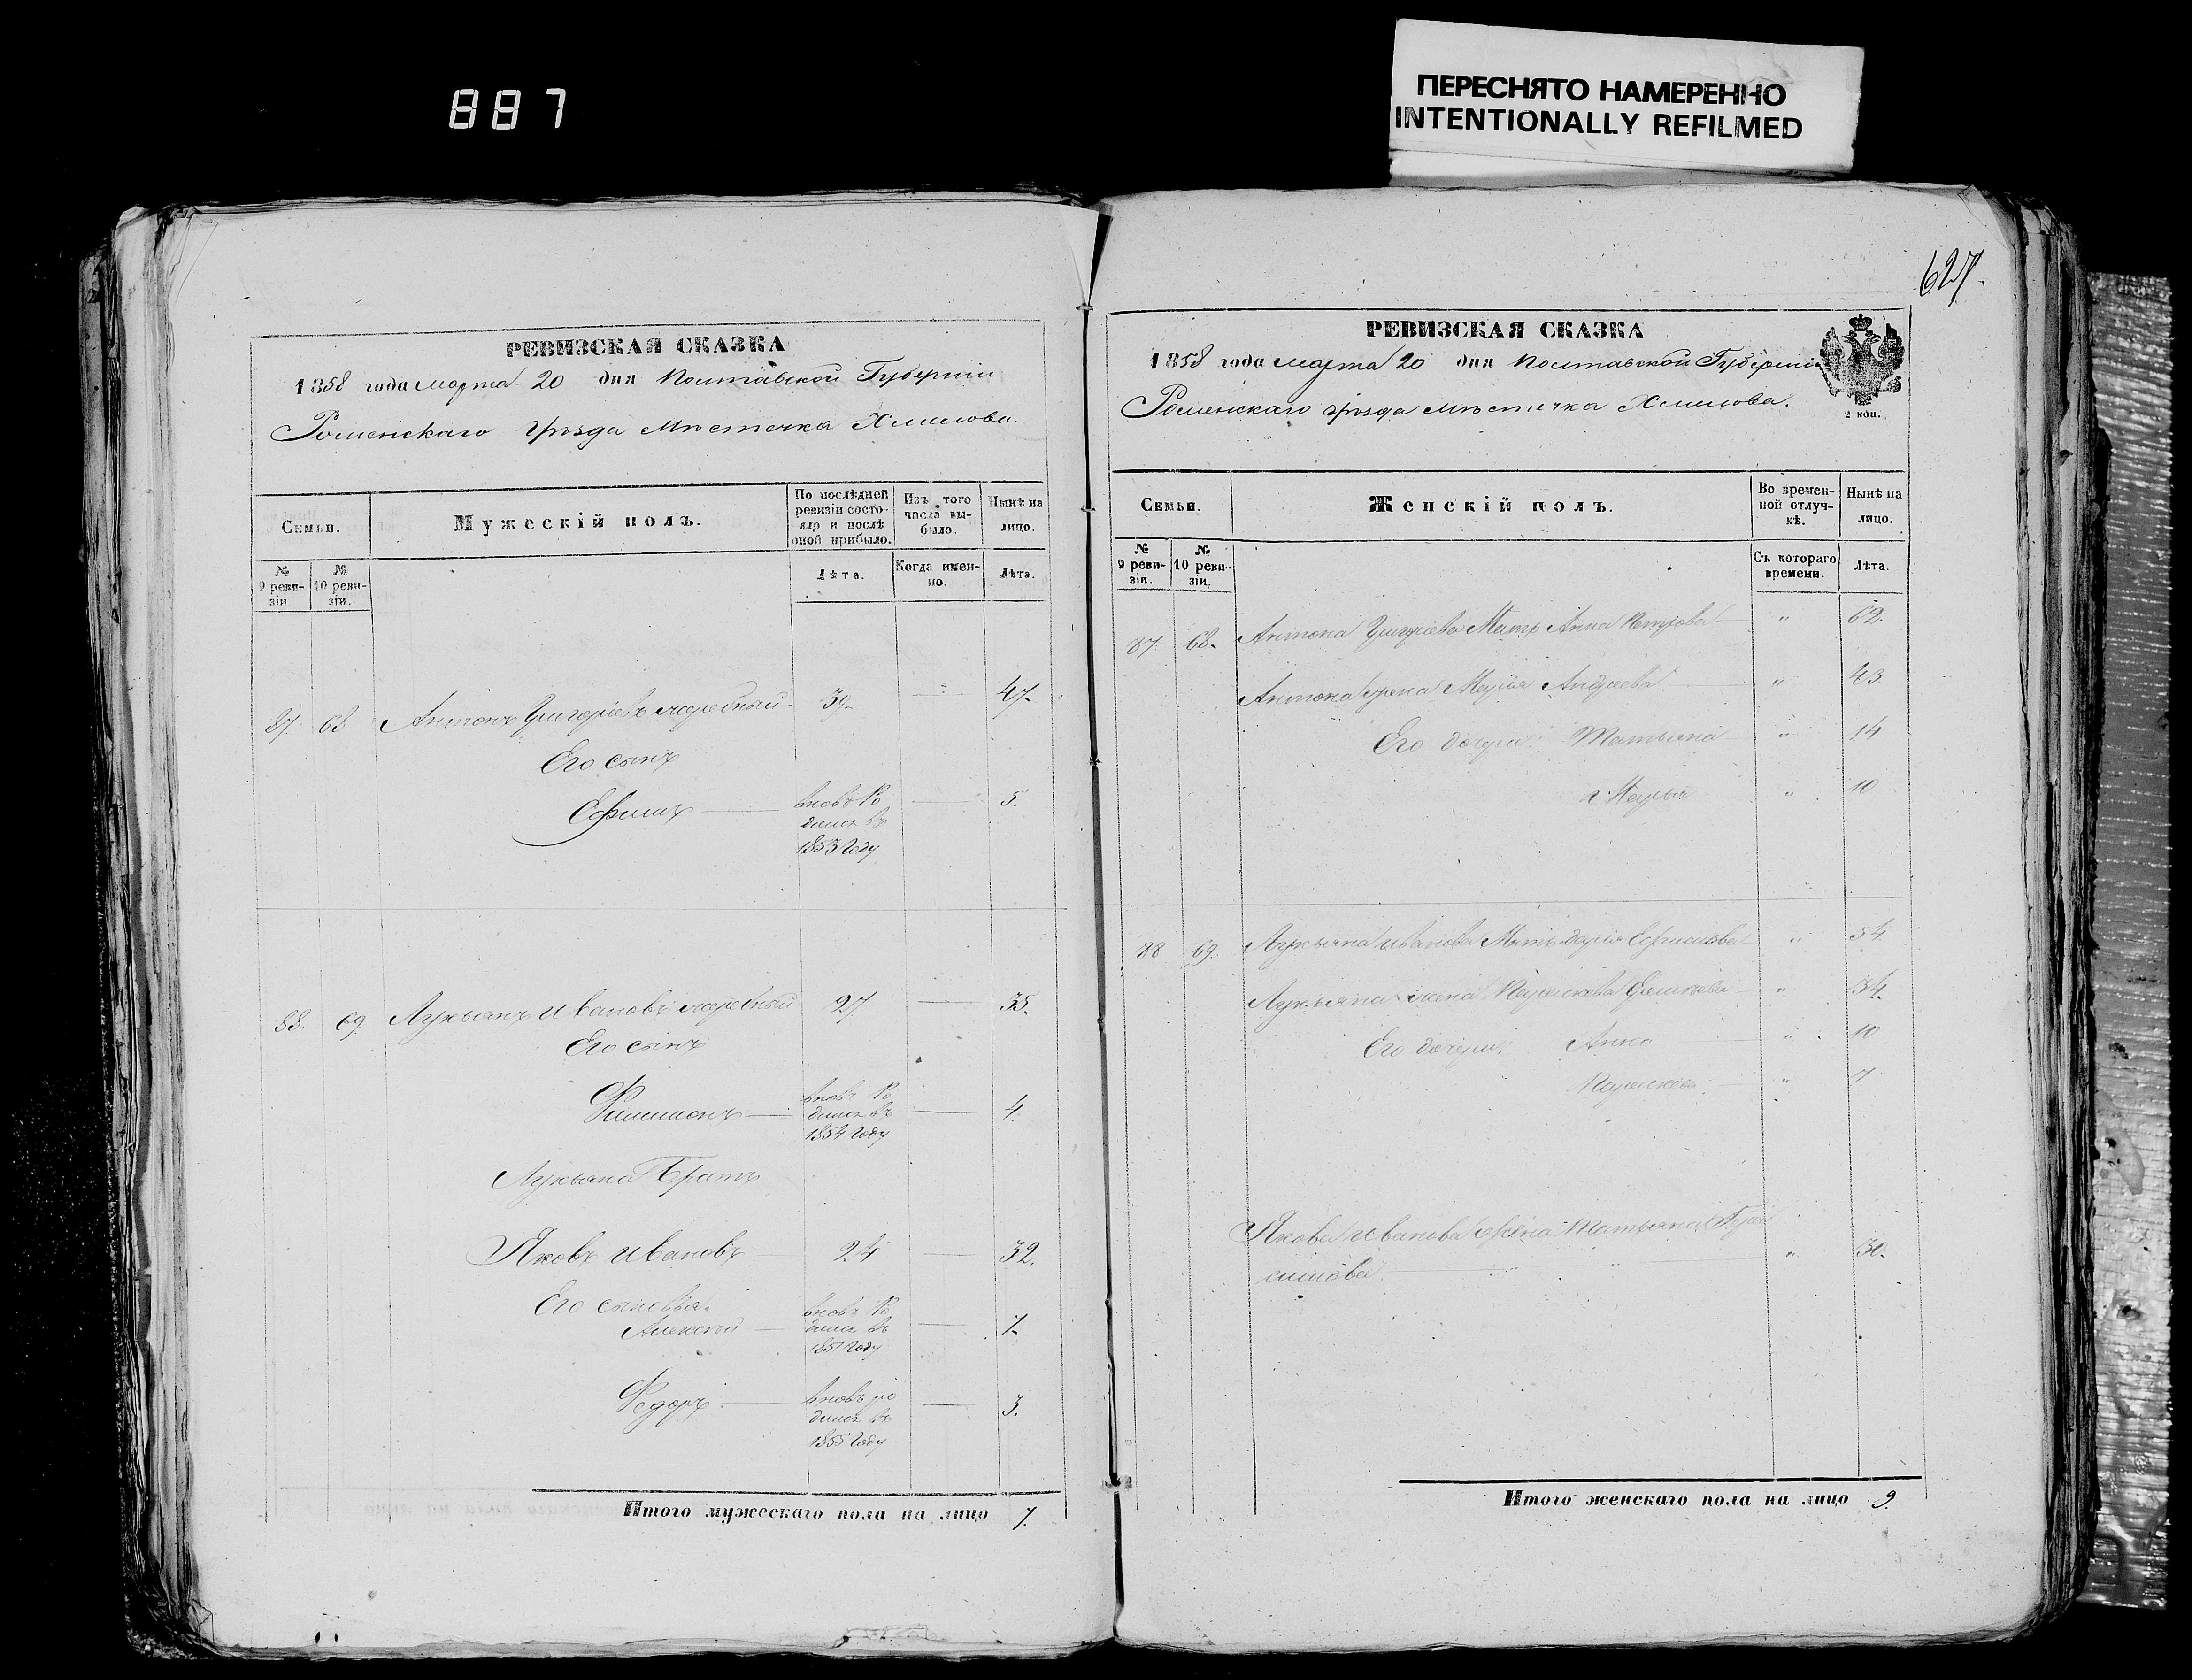 887
ПЕРЕСНЯТО НАМЕРЕННО
INTENTIONALLY REFILMED
РЕВИЗСКАЯ СКАЗКА
1858 года марта 20 дня Полтавской Губерніи
Роменскаго уѣзда Мѣстечка Хмилова.
Семьи.
Мужескій полъ.
По послѣдней ревизіи состояло и послѣ оной прибыло.
Изъ того числа выбыло.
Нынѣ на лицо.
№ 9 ревизіи
№ 10 ревизіи.
Лѣта.
Когда именно.
Лѣта.
87. 68 Антонъ Григоріевъ 39 — 47
Его сынъ
Ефимъ — вновь родился въ 1853 году — 5.
88. 69. Лукьянъ Ивановъ 27 — 35.
Его сынъ
Филимонъ — вновь родился въ 1854 году — 4.
Лукьяна Братъ
Яковъ Ивановъ 24 — 32.
Его сыновья.
Алексѣй — вновь родился въ 1851 году — 7.
Федоръ — вновь родился въ 1855 году — 3.
Итого мужескаго пола на лицо 7.
627.
РЕВИЗСКАЯ СКАЗКА
1858 года марта 20 дня Полтавской Губерніи
Роменскаго уѣзда мѣстечка Хмилова.
2 коп.
Семьи.
Женскій полъ.
Во временной отлучкѣ.
Нынѣ на лицо.
№ 9 ревизіи.
№ 10 ревизіи.
Съ котораго времени.
Лѣта.
87. 68. Антона Григоріева Мать Анна Петрова — " 62.
Антона жена Марія Андреева — " 43
Его дочери: Татьяна " 14
и Марья " 10
88 69. Лукьяна Иванова Мать Дарія Ефимова " 54
Лукьяна жена " 34.
Его дочери: Анна — " 10
" 7
Якова Иванова жена Татьяна
" 30.
Итого женскаго пола на лицо 9.